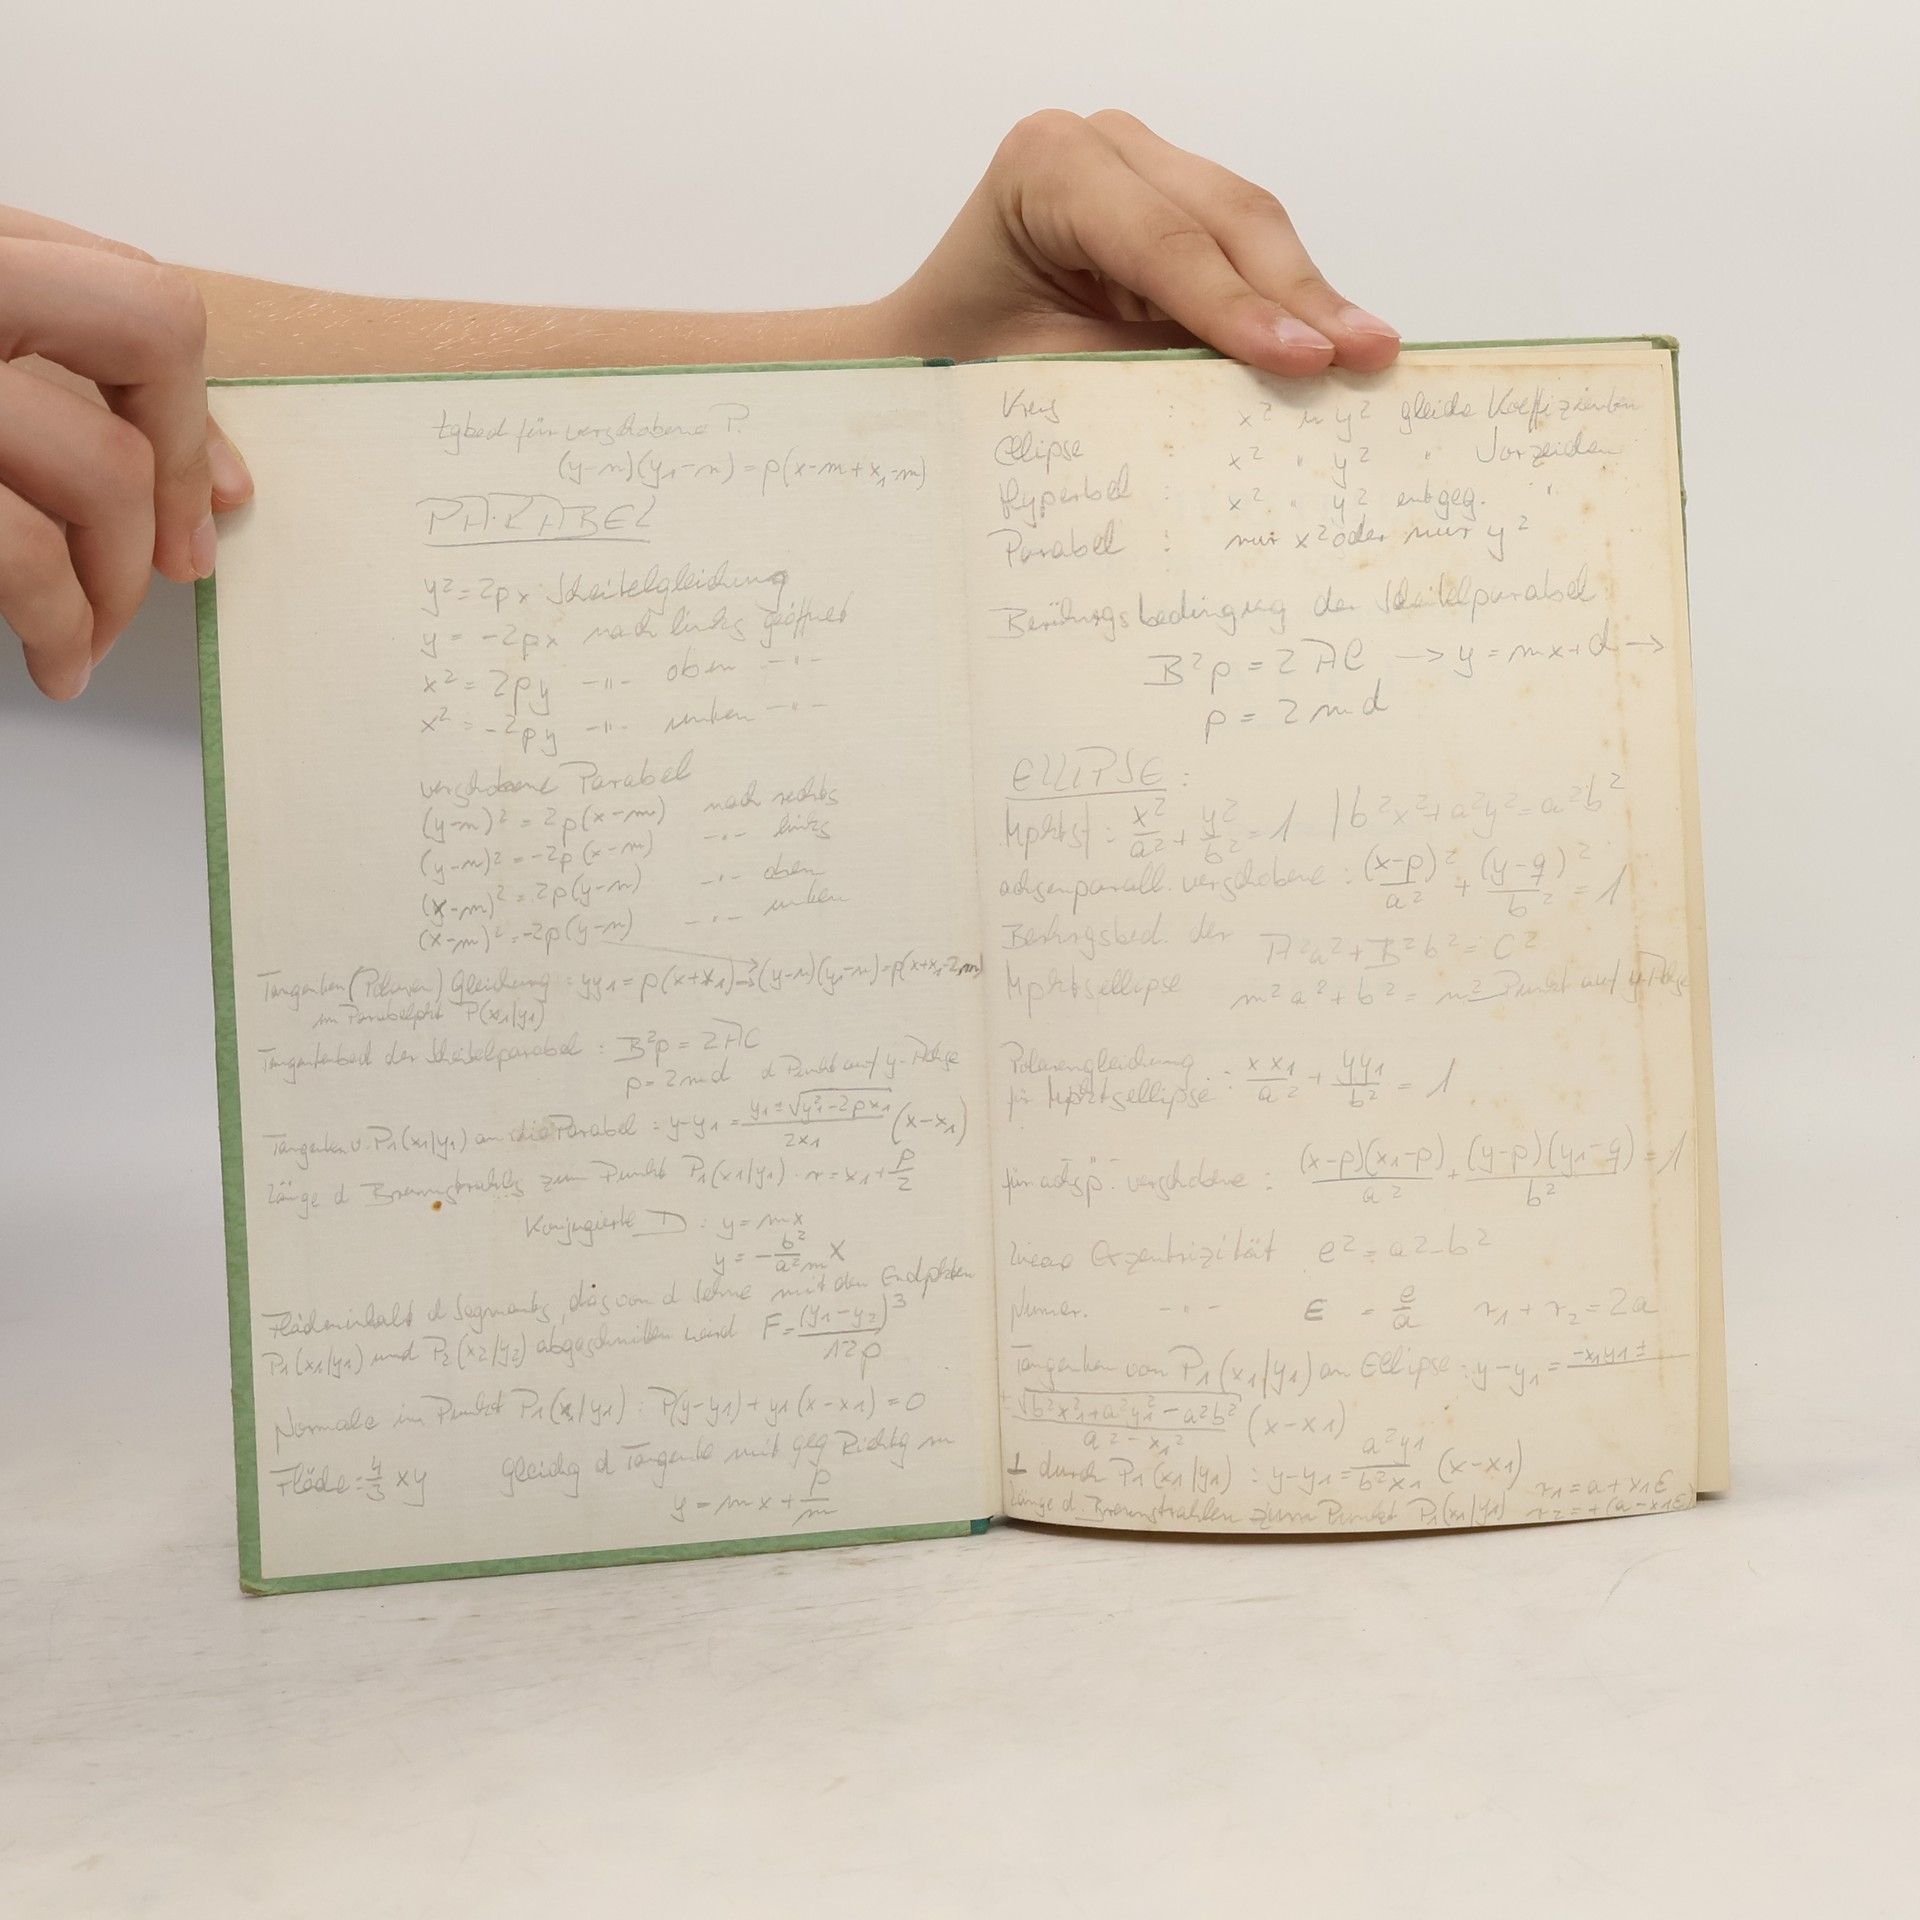 tgbed für verschobene P.
(y-n)(y₁-n) = p(x-m+x₁-m)
PARABEL
y² = 2px Scheitelgleichung
y = -2px nach links geöffnet
x² = 2py -"- oben -"-
x² = -2py -"- unten -"-
verschobene Parabel
(y-n)² = 2p(x-m) nach rechts
(y-n)² = -2p(x-m) -"- links
(x-m)² = 2p(y-n) -"- oben
(x-m)² = -2p(y-n) -"- unten
Tangenten (Polaren) Gleichung : yy₁ = p(x+x₁) → (y-n)(y₁-n) = p(x+x₁-2m)
im Parabelpkt P(x₁/y₁)
Tangentenbed der Scheitelparabel : B²p = 2AC
p = 2md d Punkt auf y-Achse
Tangenten v. P₁(x₁/y₁) an die Parabel : y-y₁ = (y₁ ± √(y₁²-2px₁))/(2x₁) (x-x₁)
Länge d Brennstrahls zum Punkt P₁(x₁/y₁) · r = x₁ + p/2
Konjugierte D : y = mx
y = - b²/(a²m) x
Flächeninhalt d Segments, das von d Sehne mit den Endpkten
P₁(x₁/y₁) und P₂(x₂/y₂) abgeschnitten wird F = (y₁-y₂)³/(12p)
Normale im Punkt P₁(x₁/y₁) : P(y-y₁) + y₁(x-x₁) = 0
Fläche = 4/3 xy gleichg d Tangente mit geg Richtg m
y = mx + p/m
Kreis : x² u y² gleiche Koeffizienten
Ellipse : x² " y² " Vorzeichen
Hyperbel : x² " y² entgeg. "
Parabel : nur x² oder nur y²
Berührungsbedingung der Scheitelparabel
B²p = 2AC → y = mx+d →
p = 2md
ELLIPSE :
Mpktsf : x²/a² + y²/b² = 1 | b²x²+a²y² = a²b²
achsenparall. verschobene : (x-p)²/a² + (y-q)²/b² = 1
Berhrgsbed. der A²a² + B²b² = C²
Mpktsellipse m²a² + b² = n² Punkt auf y-Achse
Polarengleichung
für Mpktsellipse : xx₁/a² + yy₁/b² = 1
-"-
für achsp. verschobene : (x-p)(x₁-p)/a² + (y-p)(y₁-q)/b² = 1
lineare Exzentrizität e² = a²-b²
Numer. -"- ε = e/a r₁ + r₂ = 2a
Tangenten von P₁(x₁/y₁) an Ellipse : y-y₁ = -x₁y₁ ±
± √(b²x₁²+a²y₁²-a²b²)/(a²-x₁²) (x-x₁)
⊥ durch P₁(x₁/y₁) : y-y₁ = a²y₁/(b²x₁) (x-x₁)
Länge d. Brennstrahlen zum Punkt P₁(x₁/y₁) r₁ = a + x₁ε
r₂ = +(a-x₁ε)